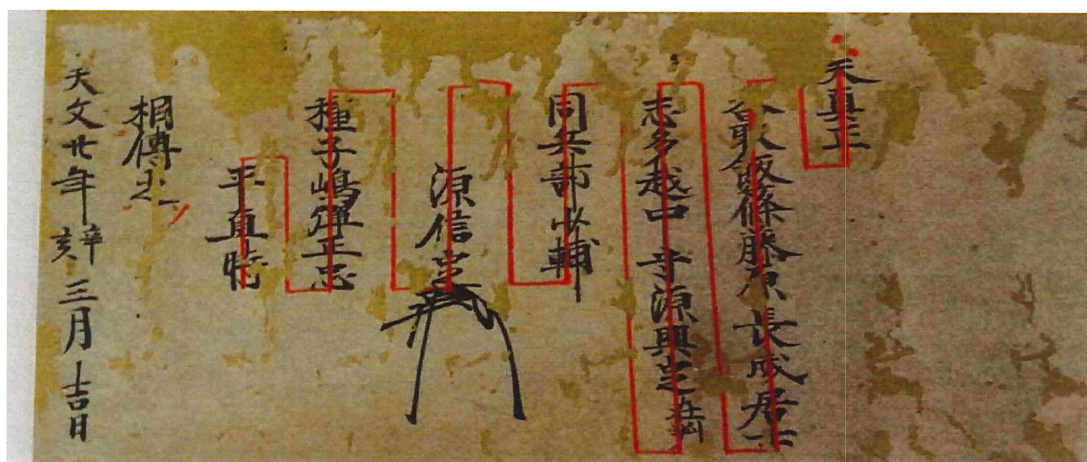 天真正
飯篠藤原長威居士
志多越中守源興世在判
同兵部少輔
源信世
種子嶋弾正忠
平直時
相傳之
天文廿年辛亥三月吉日